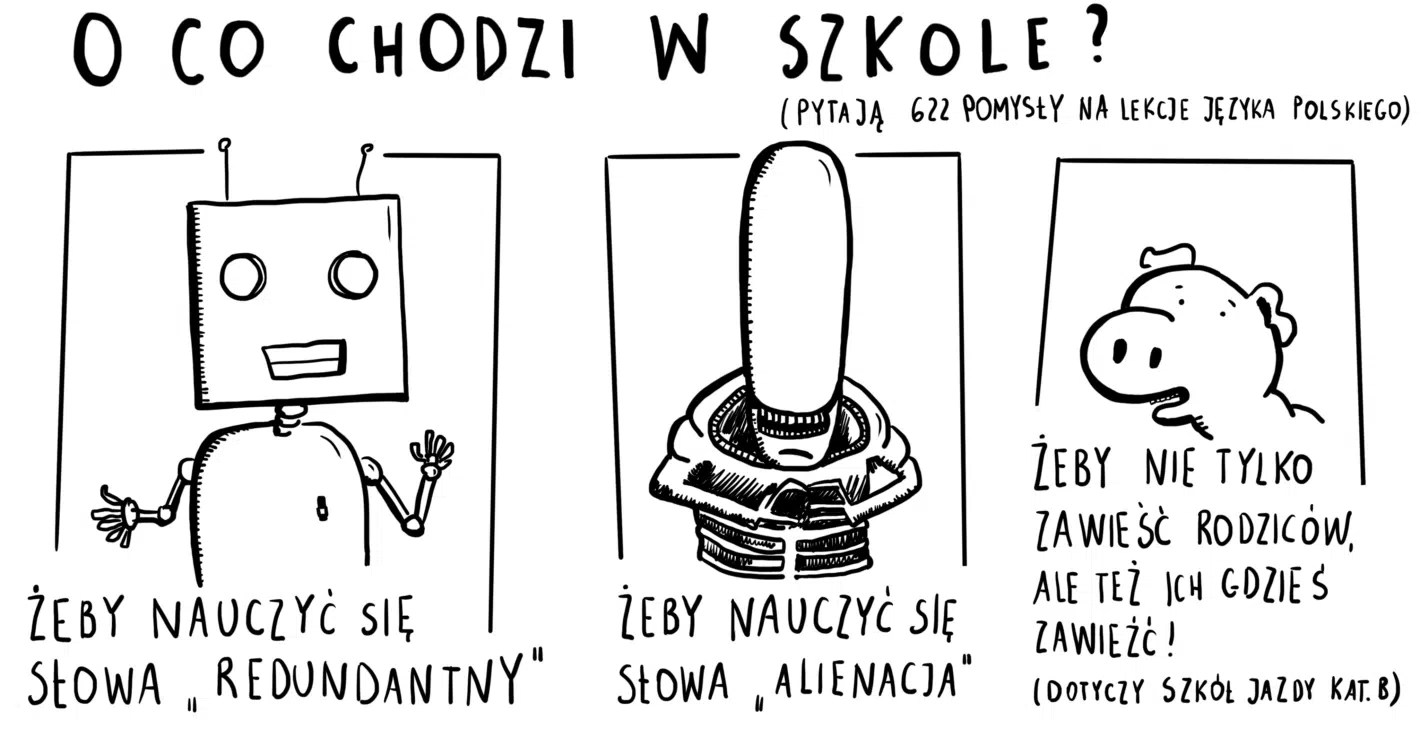 O CO CHODZI W SZKOLE?
(PYTAJĄ 622 POMYSŁY NA LEKCJE JĘZYKA POLSKIEGO)
ŻEBY NAUCZYĆ SIĘ
SŁOWA „REDUNDANTNY"
ŻEBY NAUCZYĆ SIĘ
SŁOWA „ALIENACJA"
ŻEBY NIE TYLKO
ZAWIEŚĆ RODZICÓW,
ALE TEŻ ICH GDZIEŚ
ZAWIEŹĆ!
(DOTYCZY SZKÓŁ JAZDY KAT. B)